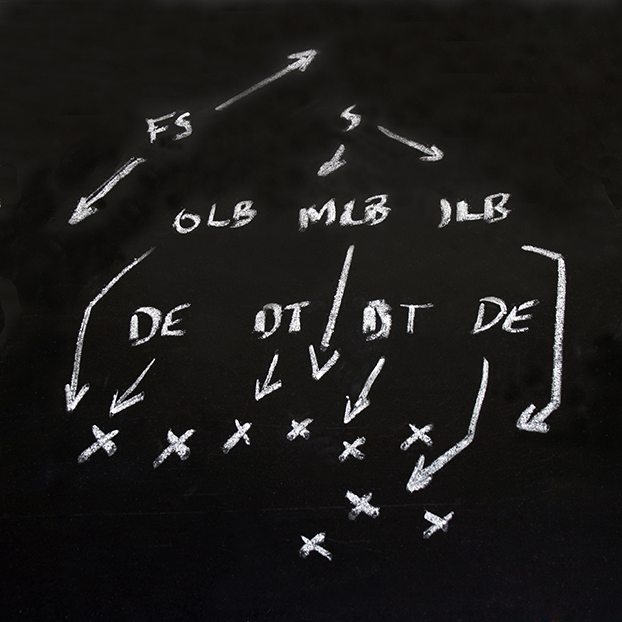 FS S
OLB MLB ILB
DE DT DT DE
X X X X X X
X X
X